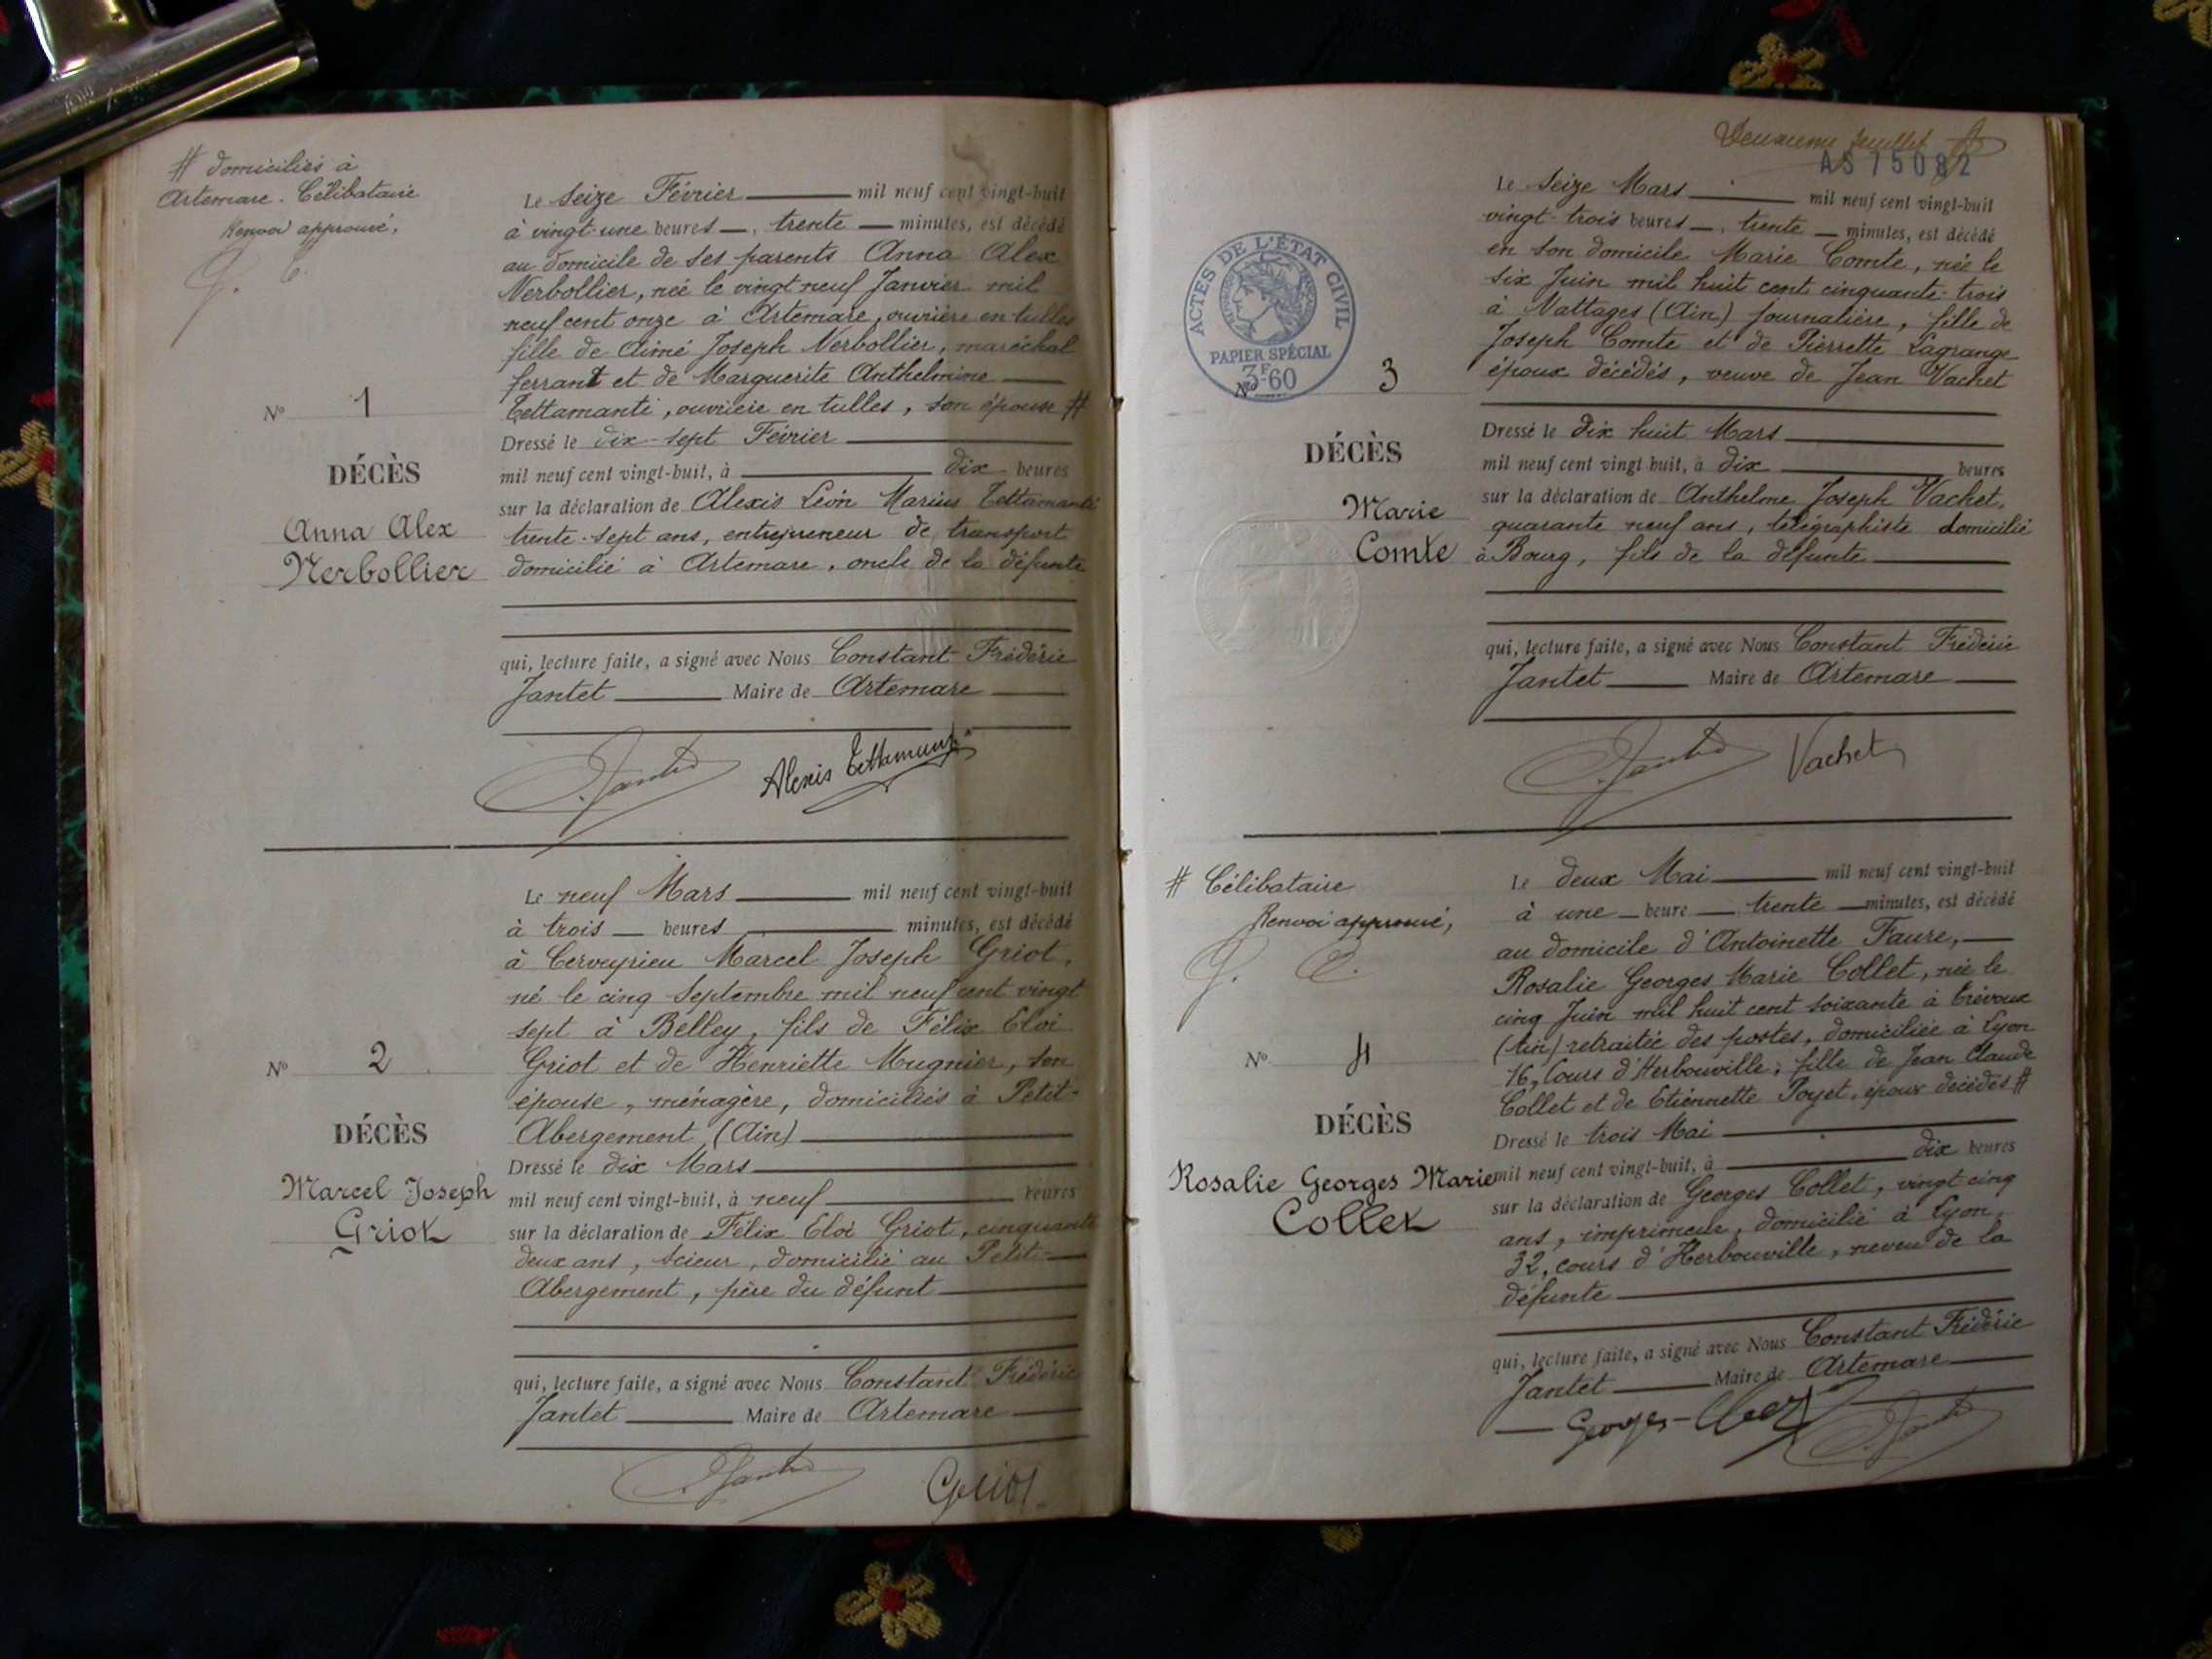 # domiciliés à
Artemare. Célibataire
Renvoi approuvé,
Le seize Février mil neuf cent vingt-huit
à vingt-une heures, trente minutes, est décédé
au domicile de ses parents Anna Alex
Nerbollier, née le vingt neuf Janvier mil
neuf cent onze à Artemare, ouvrière en tulles
fille de Aimé Joseph Nerbollier, maréchal
ferrant et de Marguerite Anthelmine
Tettamanti, ouvrière en tulles, son épouse #
Dressé le dix-sept Février
mil neuf cent vingt-huit, à dix heures
sur la déclaration de Alexis Léon Marius Tettamanti
trente-sept ans, entrepreneur de transport
domicilié à Artemare, oncle de la défunte
qui, lecture faite, a signé avec Nous Constant Frédéric
Jantet Maire de Artemare
Nº 1
DÉCÈS
Anna Alex
Nerbollier
Jantet Alexis Tettamanti
Le neuf Mars mil neuf cent vingt-huit
à trois heures minutes, est décédé
à Cerveyrieu Marcel Joseph Griot,
né le cinq Septembre mil neuf cent vingt
sept à Belley, fils de Félix Eloi
Griot et de Henriette Mugnier, son
épouse, ménagère, domiciliés à Petit-
Abergement (Ain)
Dressé le dix Mars
mil neuf cent vingt-huit, à neuf heures
sur la déclaration de Félix Eloi Griot, cinquante
deux ans, scieur, domicilié au Petit-
Abergement, père du défunt
qui, lecture faite, a signé avec Nous Constant Frédéric
Jantet Maire de Artemare
Nº 2
DÉCÈS
Marcel Joseph
Griot
Jantet Griot
Deuxième feuillet
AS 75082
ACTES DE L'ÉTAT CIVIL
PAPIER SPÉCIAL
3F60
Le seize Mars mil neuf cent vingt-huit
vingt-trois heures, trente minutes, est décédé
en son domicile Marie Comte, née le
six Juin mil huit cent cinquante-trois
à Nattages (Ain) journalière, fille de
Joseph Comte et de Pierrette Lagrange
époux décédés, veuve de Jean Vachet
Dressé le dix huit Mars
mil neuf cent vingt-huit, à dix heures
sur la déclaration de Anthelme Joseph Vachet,
quarante neuf ans, télégraphiste domicilié
à Bourg, fils de la défunte
qui, lecture faite, a signé avec Nous Constant Frédéric
Jantet Maire de Artemare
Nº 3
DÉCÈS
Marie
Comte
Jantet Vachet
# Célibataire
Renvoi approuvé,
Le deux Mai mil neuf cent vingt-huit
à une heure, trente minutes, est décédé
au domicile d'Antoinette Faure,
Rosalie Georges Marie Collet, née le
cinq Juin mil huit cent soixante à Trévoux
(Ain) retraitée des postes, domiciliée à Lyon
16, Cours d'Herbouville; fille de Jean Claude
Collet et de Etiennette Poyet, époux décédés #
Dressé le trois Mai
mil neuf cent vingt-huit, à dix heures
sur la déclaration de Georges Collet, vingt cinq
ans, imprimeur, domicilié à Lyon,
32, cours d'Herbouville, neveu de la
défunte
qui, lecture faite, a signé avec Nous Constant Frédéric
Jantet Maire de Artemare
Nº 4
DÉCÈS
Rosalie Georges Marie
Collet
Georges Jantet